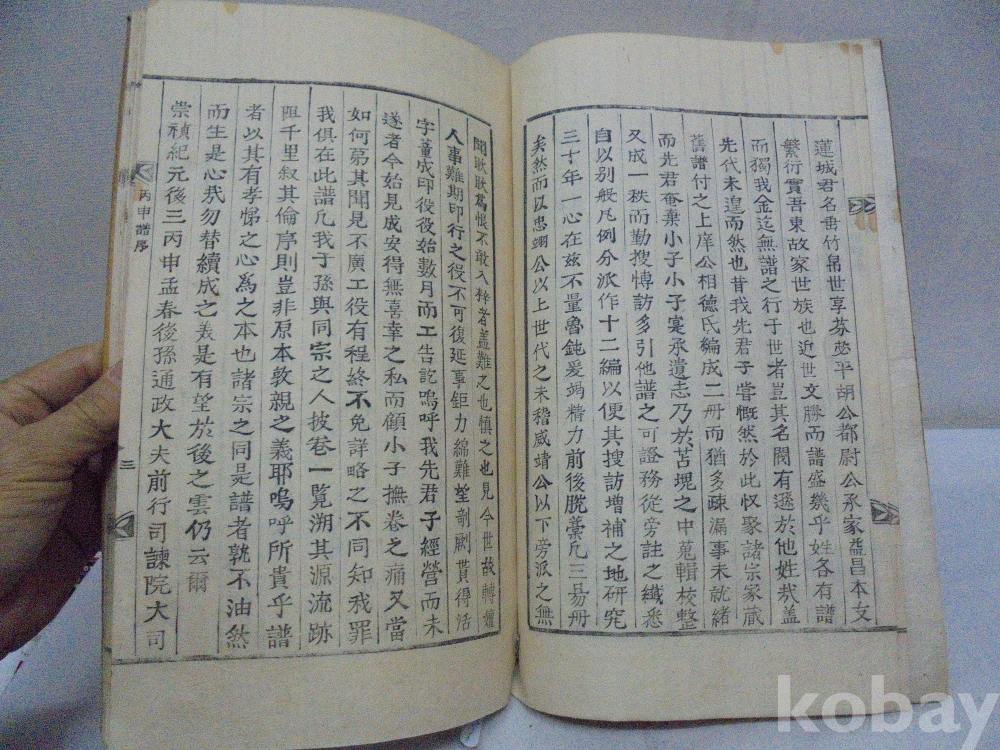 蓮城君名垂竹帛世享芬苾平胡公都尉公承家益昌本支
繁衍實吾東故家世族也近世文勝而譜盛幾乎姓各有譜
而獨我金迄無譜之行于世者豈其名閥有遜於他姓哉盖
先代未遑而然也昔我先君子嘗慨然於此収聚諸宗家藏
舊譜付之上庠公相德氏編成二冊而猶多疎漏事未就緒
而先君奄棄小子小子寔承遺志乃於苫塊之中蒐輯校整
又成一秩而勤搜博訪多引他譜之可證務從旁註之纖悉
自以别般凡例分派作十二編以便其搜訪增補之地研究
三十年一心在玆不量魯鈍爰竭精力前後脫藁凡三易冊
矣然而以忠翊公以上世代之未稽威靖公以下旁派之無
聞耿耿爲恨不敢入梓者盖難之也愼之也見今世故轉嬗
人事難期印行之役不可復延事鉅力綿難望剞劂貰得活
字董成印役役始數月而工告訖嗚呼我先君子經營而未
遂者今始見成安得無喜幸之私而顧小子撫卷之痛又當
如何第其聞見不廣工役有程終不免詳略之不同知我罪
我俱在此譜凡我子孫與同宗之人披卷一覽溯其源流跡
阻千里叙其倫序則豈非原本敦親之義耶嗚呼所貴乎譜
者以其有孝悌之心爲之本也諸宗之同是譜者孰不油然
而生是心哉勿替續成之義是有望於後之雲仍云爾
崇禎紀元後三丙申孟春後孫通政大夫前行司諫院大司
丙申譜序
三
kobay